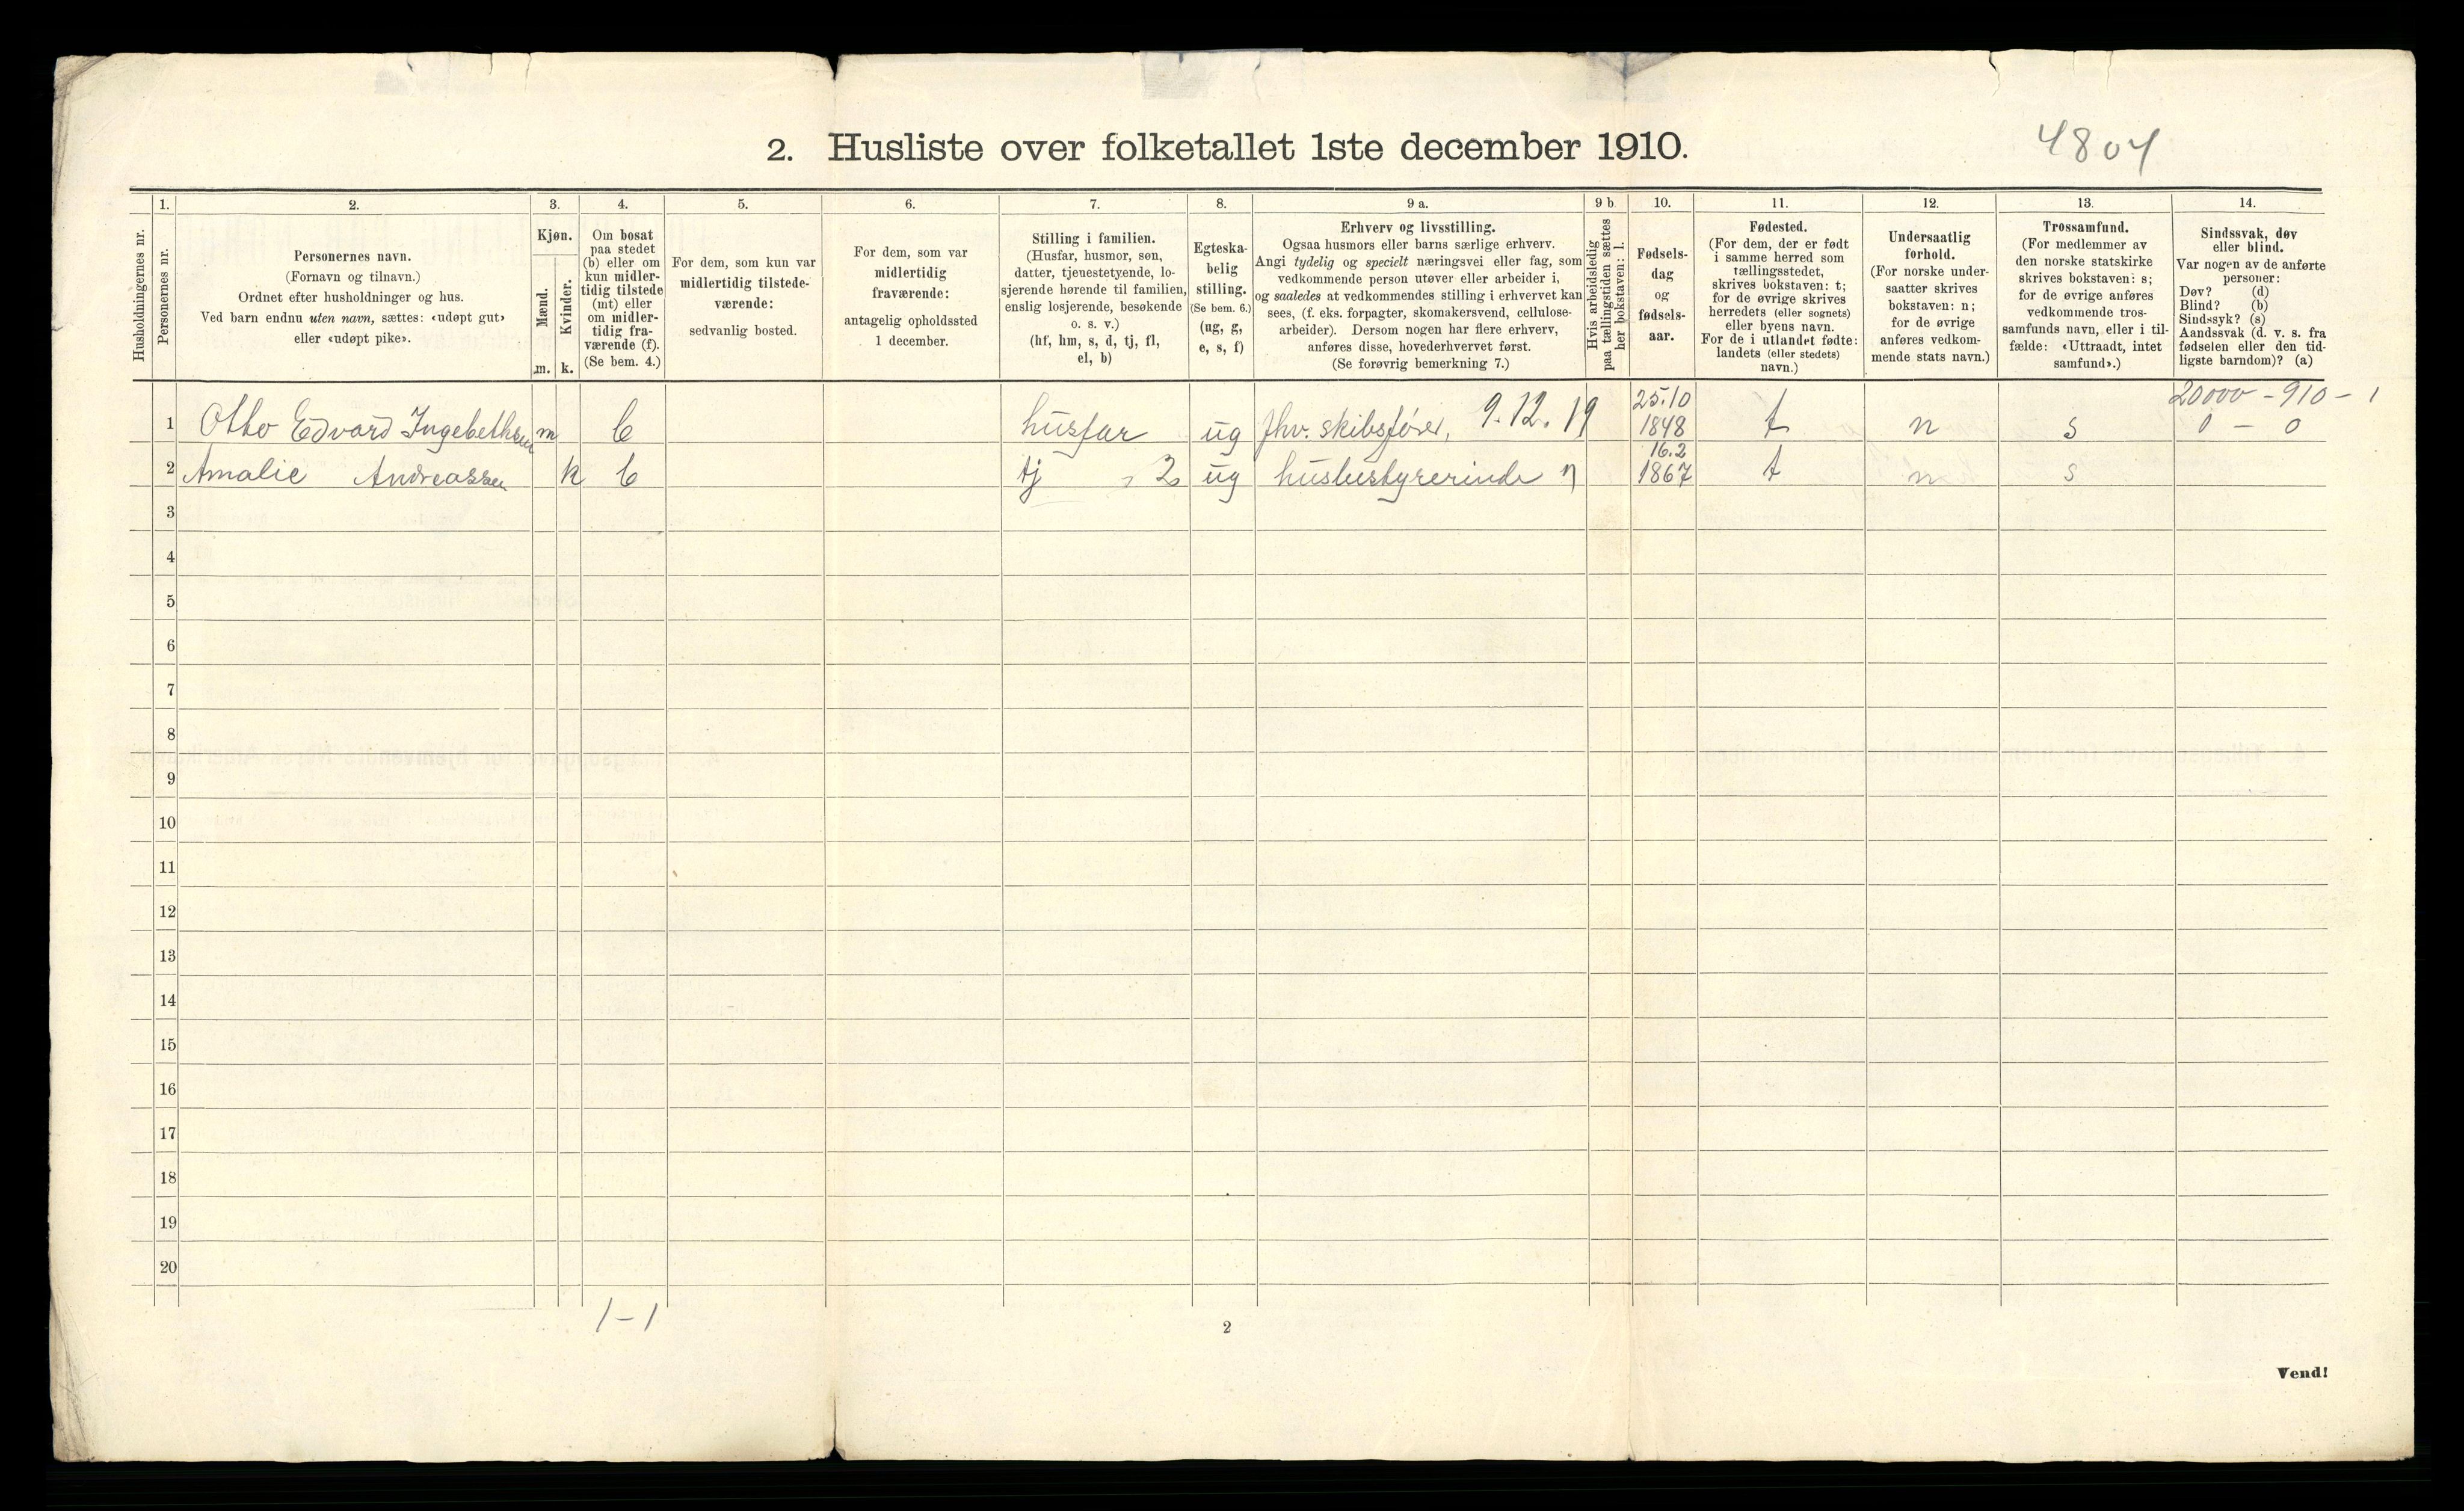 2. Husliste over folketallet 1ste december 1910.
4804
Husholdningernes nr.
1.
Personernes nr.
2.
Personernes navn.
(Fornavn og tilnavn.)
Ordnet efter husholdninger og hus.
Ved barn endnu uten navn, sættes: «udøpt gut»
eller «udøpt pike».
3.
Kjøn.
Mænd.
Kvinder.
m.
k.
4.
Om bosat
paa stedet
(b) eller om
kun midler-
tidig tilstede
(mt) eller
om midler-
tidig fra-
værende (f).
(Se bem. 4.)
5.
For dem, som kun var
midlertidig tilstede-
værende:
sedvanlig bosted.
6.
For dem, som var
midlertidig
fraværende:
antagelig opholdssted
1 december.
7.
Stilling i familien.
(Husfar, husmor, søn,
datter, tjenestetyende, lo-
sjerende hørende til familien,
enslig losjerende, besøkende
o. s. v.)
(hf, hm, s, d, tj, fl,
el, b)
8.
Egteska-
belig
stilling.
(Se bem. 6.)
(ug, g,
e, s, f)
9 a.
Erhverv og livsstilling.
Ogsaa husmors eller barns særlige erhverv.
Angi tydelig og specielt næringsvei eller fag, som
vedkommende person utøver eller arbeider i,
og saaledes at vedkommendes stilling i erhvervet kan
sees, (f. eks. forpagter, skomakersvend, cellulose-
arbeider). Dersom nogen har flere erhverv,
anføres disse, hovederhvervet først.
(Se forøvrig bemerkning 7.)
9 b
Hvis arbeidsledig
paa tællingstiden sættes
her bokstaven: l.
10.
Fødsels-
dag
og
fødsels-
aar.
11.
Fødested.
(For dem, der er født
i samme herred som
tællingsstedet,
skrives bokstaven: t;
for de øvrige skrives
herredets (eller sognets)
eller byens navn.
For de i utlandet fødte:
landets (eller stedets)
navn.)
12.
Undersaatlig
forhold.
(For norske under-
saatter skrives
bokstaven: n;
for de øvrige
anføres vedkom-
mende stats navn.)
13.
Trossamfund.
(For medlemmer av
den norske statskirke
skrives bokstaven: s;
for de øvrige anføres
vedkommende tros-
samfunds navn, eller i til-
fælde: «Uttraadt, intet
samfund».)
14.
Sindssvak, døv
eller blind.
Var nogen av de anførte
personer:
Døv? (d)
Blind? (b)
Sindssyk? (s)
Aandssvak (d. v. s. fra
fødselen eller den tid-
ligste barndom)? (a)
20000 - 910 - 1
1 Otto Edvard Ingebethsen m b husfar ug fhv. skibsfører, 9.12.19 25.10 1848 t n s 0 - 0
2 Amalie Andreassen k b tj 2 ug husbestyrerinde 16.2 1867 t n s
3
4
5
6
7
8
9
10
11
12
13
14
15
16
17
18
19
20
1-1
2
Vend!